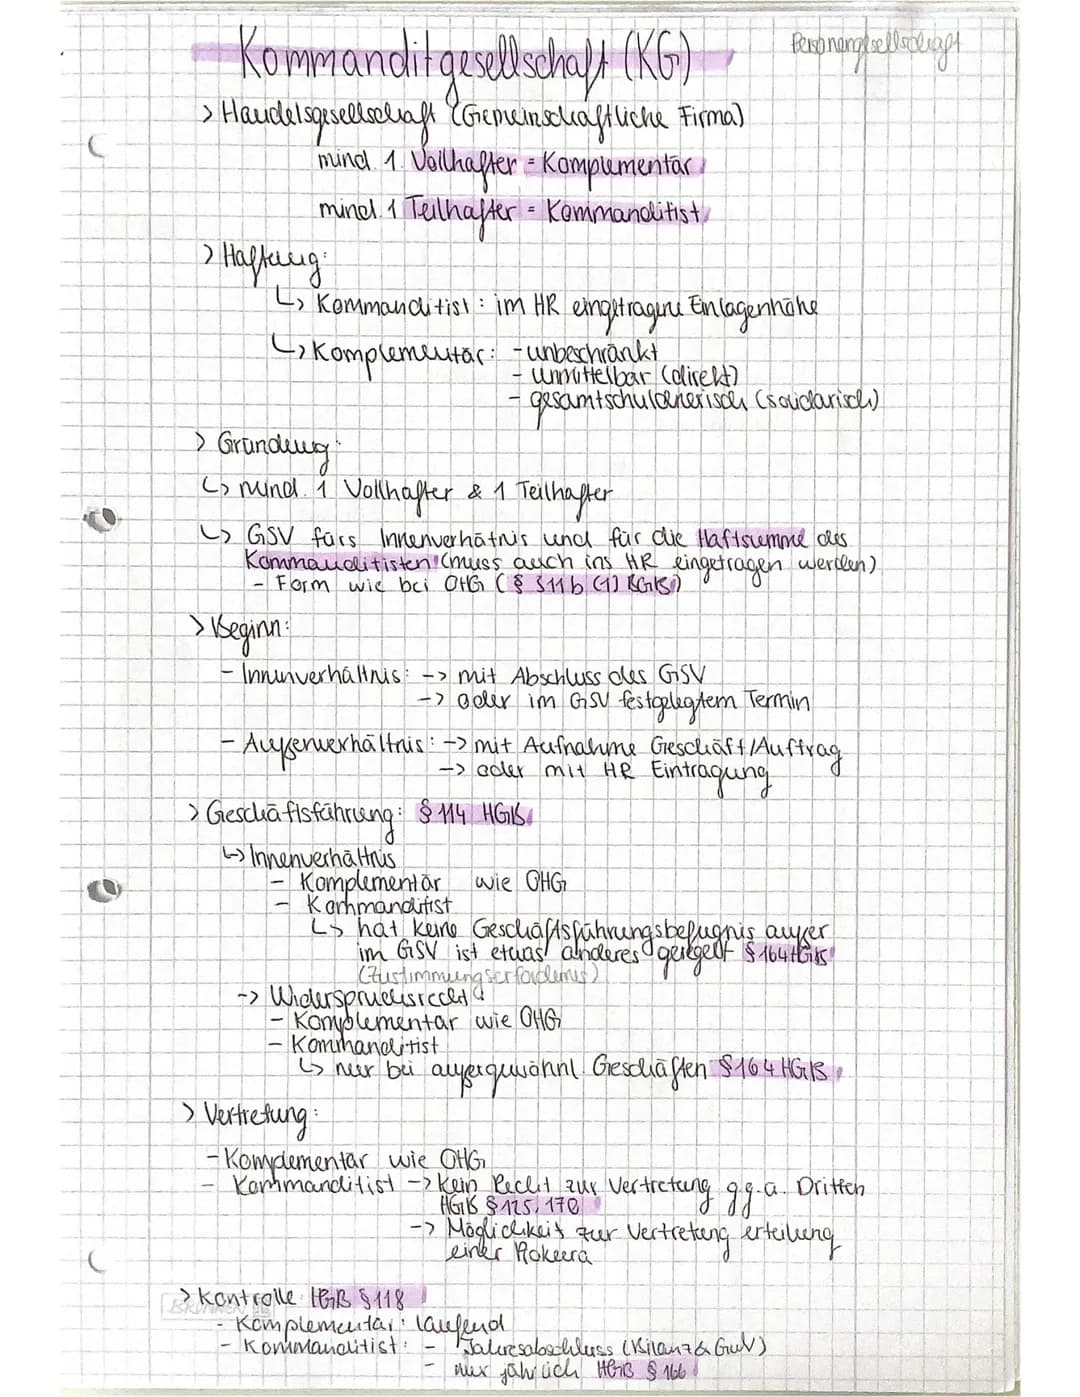 Kommanditgesellschaft (KG)
Personengesellschaft
> Handelsgesellschaft (Gemeinschaftliche Firma)
mind. 1. Vollhafter = Komplementär
mind. 1 Teilhafter = Kommanditist
> Haftung:
↳ Kommanditist: im HR eingetragene Einlagenhöhe
↳ Komplementär: - unbeschränkt
- unmittelbar (direkt)
- gesamtschuldnerisch (solidarisch)
> Gründung:
↳ mind. 1 Vollhafter & 1 Teilhafter
↳ GSV fürs Innenverhätnis und für die Haftsumme des
Kommanditisten (muss auch ins HR eingetragen werden)
- Form wie bei OHG (§ 311b (1) BGB)
> Beginn:
- Innenverhältnis: -> mit Abschluss des GSV
-> oder im GSV festgelegtem Termin
- Außenverhältnis: -> mit Aufnahme Geschäft/Auftrag
-> oder mit HR Eintragung
> Geschäftsführung: § 114 HGB
↳ Innenverhältnis
- Komplementär wie OHG
- Kommanditist
↳ hat keine Geschäftsführungsbefugnis außer
im GSV ist etwas anderes geregelt § 164 HGB
(Zustimmungserfordernis)
-> Widerspruchsrecht
- Komplementär wie OHG
- Kommanditist
↳ nur bei außergewöhnl. Geschäften § 164 HGB
> Vertretung:
- Komplementär wie OHG
- Kommanditist -> Kein Recht zur Vertretung gg.a. Dritten
HGB § 125, 170
-> Möglichkeit zur Vertretung erteilung
einer Prokura
> Kontrolle HGB § 118
BRUNNEN
- Komplementär: laufend
- Kommanditist: - Jahresabschluss (Bilanz & GuV)
- nur jährlich HGB § 166